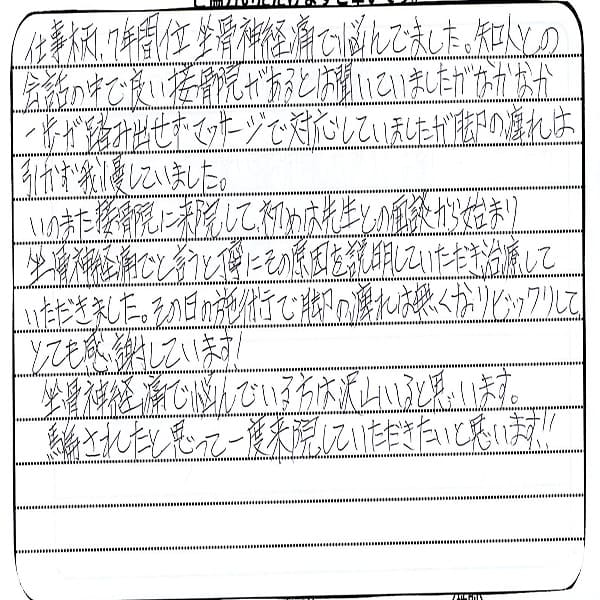 仕事柄、7年間位坐骨神経痛で悩んでました。知人との
会話の中で良い接骨院があるとは聞いていましたがなかなか
一歩が踏み出せずマッサージで対応していましたが脚の痺れは
引かず我慢していました。
いのまた接骨院に来院して、初めは先生との面談から始まり
坐骨神経痛でと言うと、丁寧にその原因を説明していただき治療して
いただきました。その日の施術で脚の痺れは無くなりビックリして、
とても感謝しています!
坐骨神経痛で悩んでいる方は沢山いると思います。
騙されたと思って一度来院していただきたいと思います!!